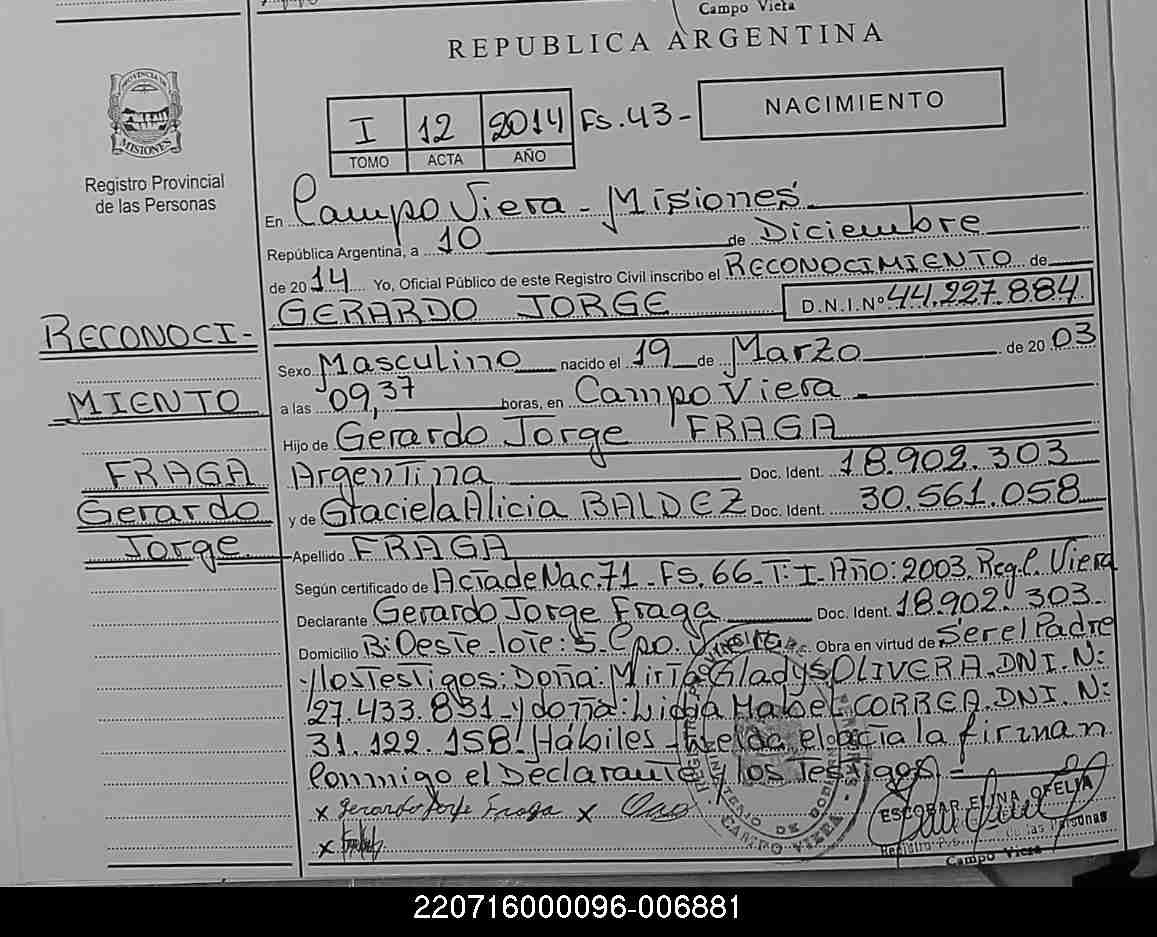 Campo Viera
REPUBLICA ARGENTINA
PROVINCIA DE
MISIONES
Registro Provincial
de las Personas
I 12 2014 Fs. 43-
TOMO ACTA AÑO
NACIMIENTO
En Campo Viera - Misiones
República Argentina, a 10 de Diciembre
de 2014 Yo, Oficial Público de este Registro Civil inscribo el RECONOCIMIENTO de
GERARDO JORGE D.N.I. Nº 44.227.884
RECONOCI-
MIENTO
FRAGA
Gerardo
Jorge
Sexo Masculino nacido el 19 de Marzo de 2003
a las 09,37 horas, en Campo Viera
Hijo de Gerardo Jorge FRAGA
Argentina Doc. Ident. 18.902.303
y de Graciela Alicia BALDEZ Doc. Ident. 30.561.058
Apellido FRAGA
Según certificado de Acta de Nac. 71 - Fs. 66 - T. I - Año: 2003. Reg. C. Viera
Declarante Gerardo Jorge Fraga Doc. Ident. 18.902.303
Domicilio B: Oeste - lote: 5 - Cpo. Obra en virtud de Ser el Padre
y los Testigos: Doña: Mirta Gladys OLIVERA. DNI. N:
27.433.831 - y doña: Lidia Mabel CORREA. DNI. N:
31.122.158 Hábiles - leída el acta la firman
Conmigo el Declarante y los Testigos -
x Gerardo Jorge Fraga x
x
ESCOBAR ELINA OFELIA
de las Personas
Campo Viera
CAMPO VIERA
220716000096-006881